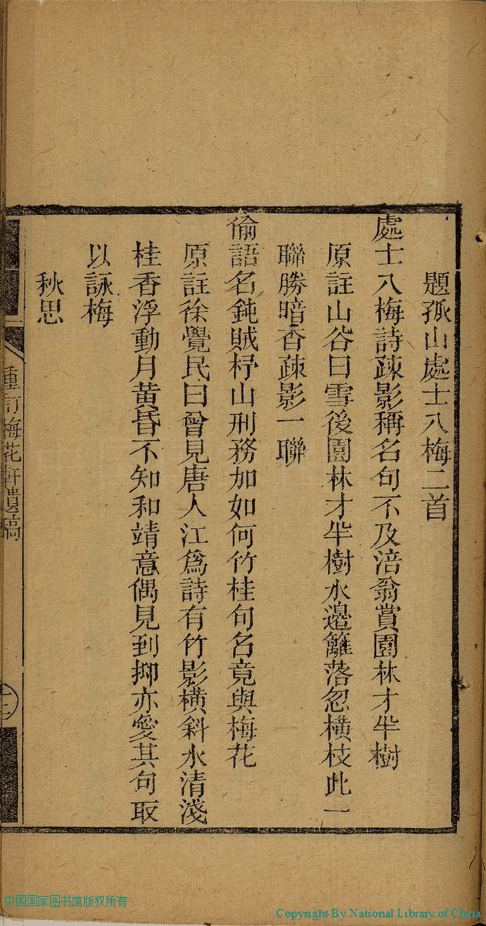 題孤山處士八梅二首
處士八梅詩疎影稱名句不及涪翁賞園林才半樹
原註山谷曰雪後園林才半樹水邉籬落忽橫枝此一
聯勝暗香疎影一聯
偷語名鈍賊杼山刑務加如何竹桂句名竟與梅花
原註徐覺民曰曾見唐人江爲詩有竹影橫斜水清淺
桂香浮動月黃昏不知和靖意偶見到抑亦愛其句取
以詠梅
秋思
重訂梅花軒遺稿
中国国家图书馆版权所有
Copyright By National Library of China